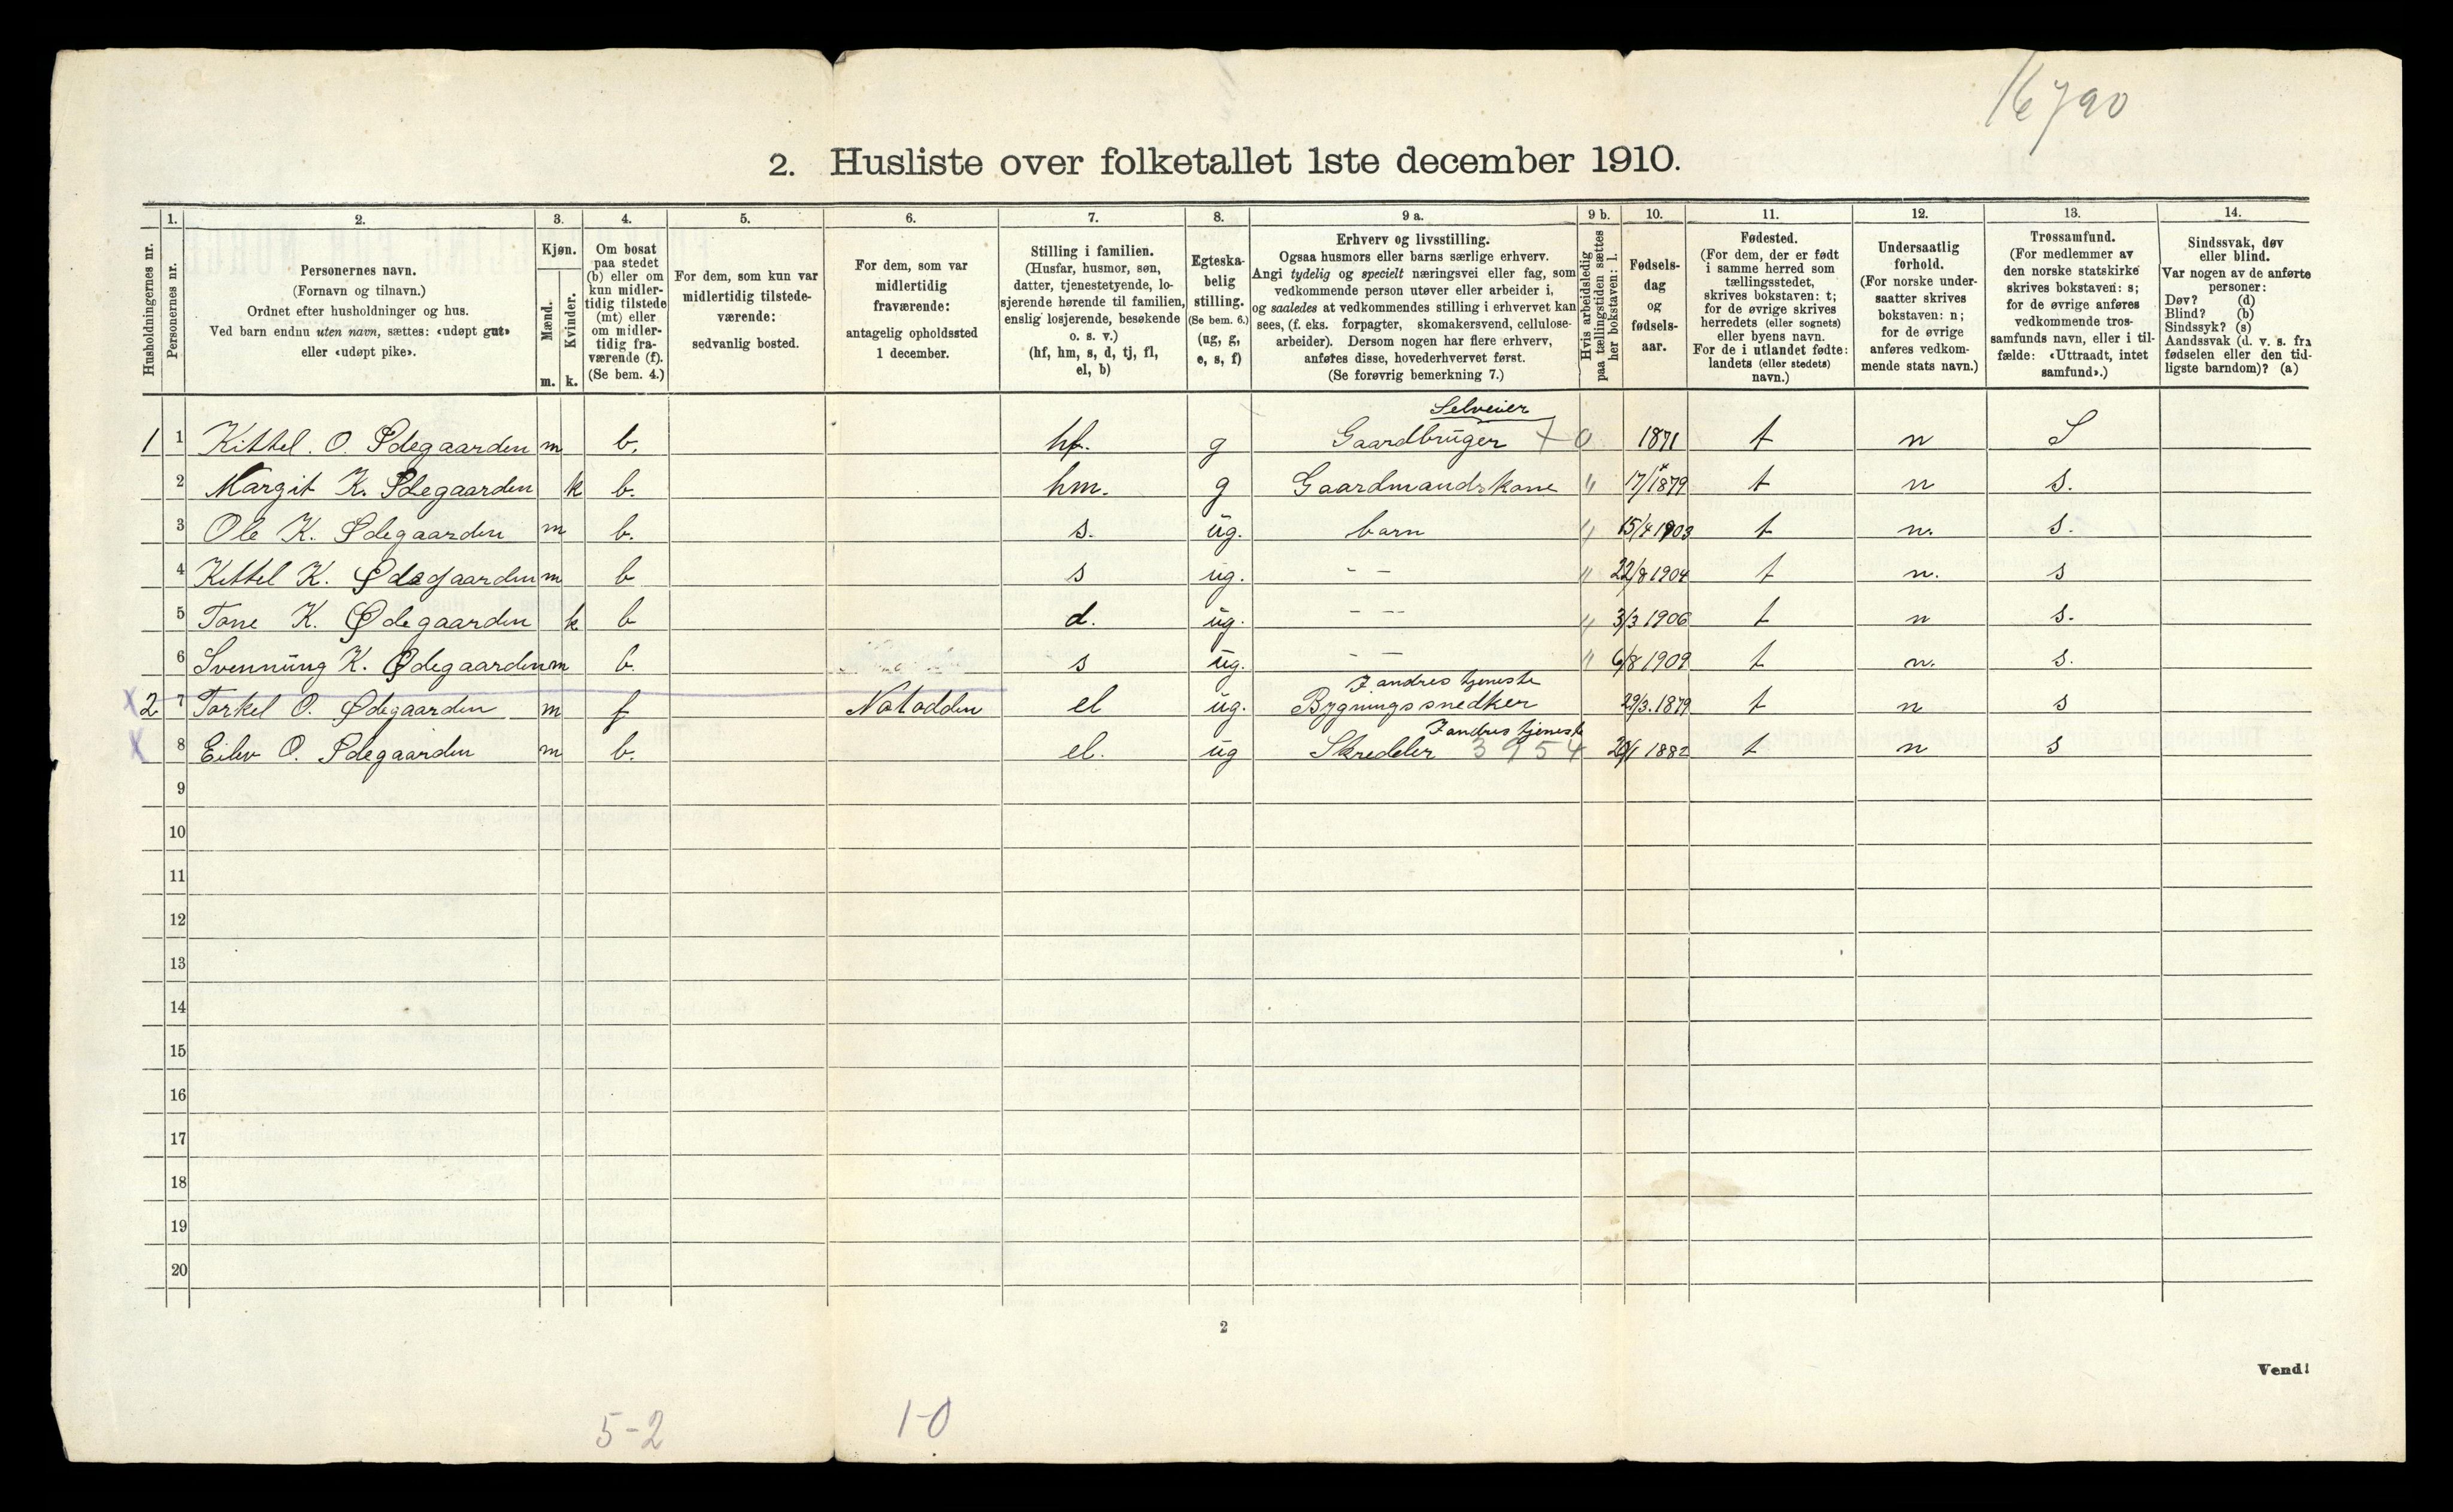 16790
2. Husliste over folketallet 1ste december 1910.
Husholdningernes nr.
1.
Personernes nr.
2.
Personernes navn.
(Fornavn og tilnavn.)
Ordnet efter husholdninger og hus.
Ved barn endnu uten navn, sættes: «udøpt gut»
eller «udøpt pike».
3.
Kjøn.
Mænd.
Kvinder.
m. k.
4.
Om bosat
paa stedet
(b) eller om
kun midler-
tidig tilstede
(mt) eller
om midler-
tidig fra-
værende (f).
(Se bem. 4.)
5.
For dem, som kun var
midlertidig tilstede-
værende:
sedvanlig bosted.
6.
For dem, som var
midlertidig
fraværende:
antagelig opholdssted
1 december.
7.
Stilling i familien.
(Husfar, husmor, søn,
datter, tjenestetyende, lo-
sjerende hørende til familien,
enslig losjerende, besøkende
o. s. v.)
(hf, hm, s, d, tj, fl,
el, b)
8.
Egteska-
belig
stilling.
(Se bem. 6.)
(ug, g,
e, s, f)
9 a.
Erhverv og livsstilling.
Ogsaa husmors eller barns særlige erhverv.
Angi tydelig og specielt næringsvei eller fag, som
vedkommende person utøver eller arbeider i,
og saaledes at vedkommendes stilling i erhvervet kan
sees, (f. eks. forpagter, skomakersvend, cellulose-
arbeider). Dersom nogen har flere erhverv,
anføres disse, hovederhvervet først.
(Se forøvrig bemerkning 7.)
9 b.
Hvis arbeidsledig
paa tællingstiden sættes
her bokstaven: l.
10.
Fødsels-
dag
og
fødsels-
aar.
11.
Fødested.
(For dem, der er født
i samme herred som
tællingsstedet,
skrives bokstaven: t;
for de øvrige skrives
herredets (eller sognets)
eller byens navn.
For de i utlandet fødte:
landets (eller stedets)
navn.)
12.
Undersaatlig
forhold.
(For norske under-
saatter skrives
bokstaven: n;
for de øvrige
anføres vedkom-
mende stats navn.)
13.
Trossamfund.
(For medlemmer av
den norske statskirke
skrives bokstaven: s;
for de øvrige anføres
vedkommende tros-
samfunds navn, eller i til-
fælde: «Uttraadt, intet
samfund».)
14.
Sindssvak, døv
eller blind.
Var nogen av de anførte
personer:
Døv? (d)
Blind? (b)
Sindssyk? (s)
Aandssvak (d. v. s. fra
fødselen eller den tid-
ligste barndom)? (a)
Selveier
1 1 Kittel. O. Ødegaarden m b. hf. g Gaardbruger + 0 1871 t n S
2 Margit K. Ødegaarden k b. hm. g Gaardmandskone " 17/ 1879 t n s.
3 Ole K. Ødegaarden m b. s. ug. barn " 15/4 1903 t n. s.
4 Kittel K. Ødegaarden m b s ug. - - " 22/8 1904 t n. s
5 Tone K. Ødegaarden k b d. ug. - - " 3/3 1906 t n s.
6 Svennung K. Ødegaarden m b. s ug. - - " 6/8 1909 t n. s.
I andres tjeneste
X 2 7 Torkel O. Ødegaarden m f Notodden el ug. Bygningssnedker 29/3. 1879 t n s
I andres tjeneste
X 8 Eilev O. Ødegaarden m b. el. ug Skredder 3954 20/1 1882 t n s
9
10
11
12
13
14
15
16
17
18
19
20
2
Vend!
5-2
1-0